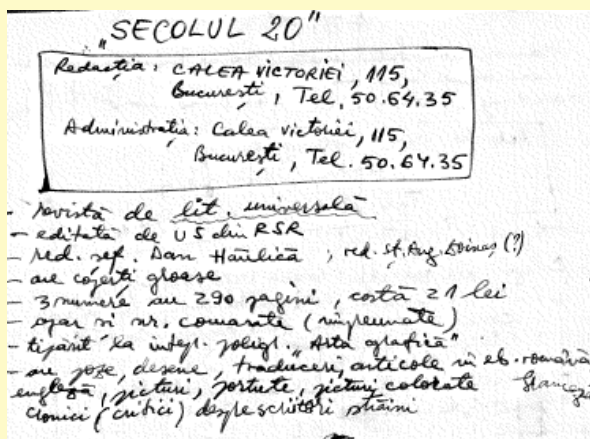 „SECOLUL 20”
Redacția: CALEA VICTORIEI, 115,
București, Tel. 50.64.35
Administrația: Calea Victoriei, 115,
București, Tel. 50.64.35
- revistă de lit. universală
- editată de US din RSR
- red. șef. Dan Hăulică, red. Șt. Aug. Doinaș (?)
- are coperți groase
- 3 numere au 290 pagini, costă 21 lei
- apar și nr. comasate (împreunate)
- tipărit la într. poligr. „Arta grafică”
- are poze, desene, traduceri, articole în lb. română
engleză, picturi, portrete, picturi colorate franceză
cronici (critici) despre scriitori străini